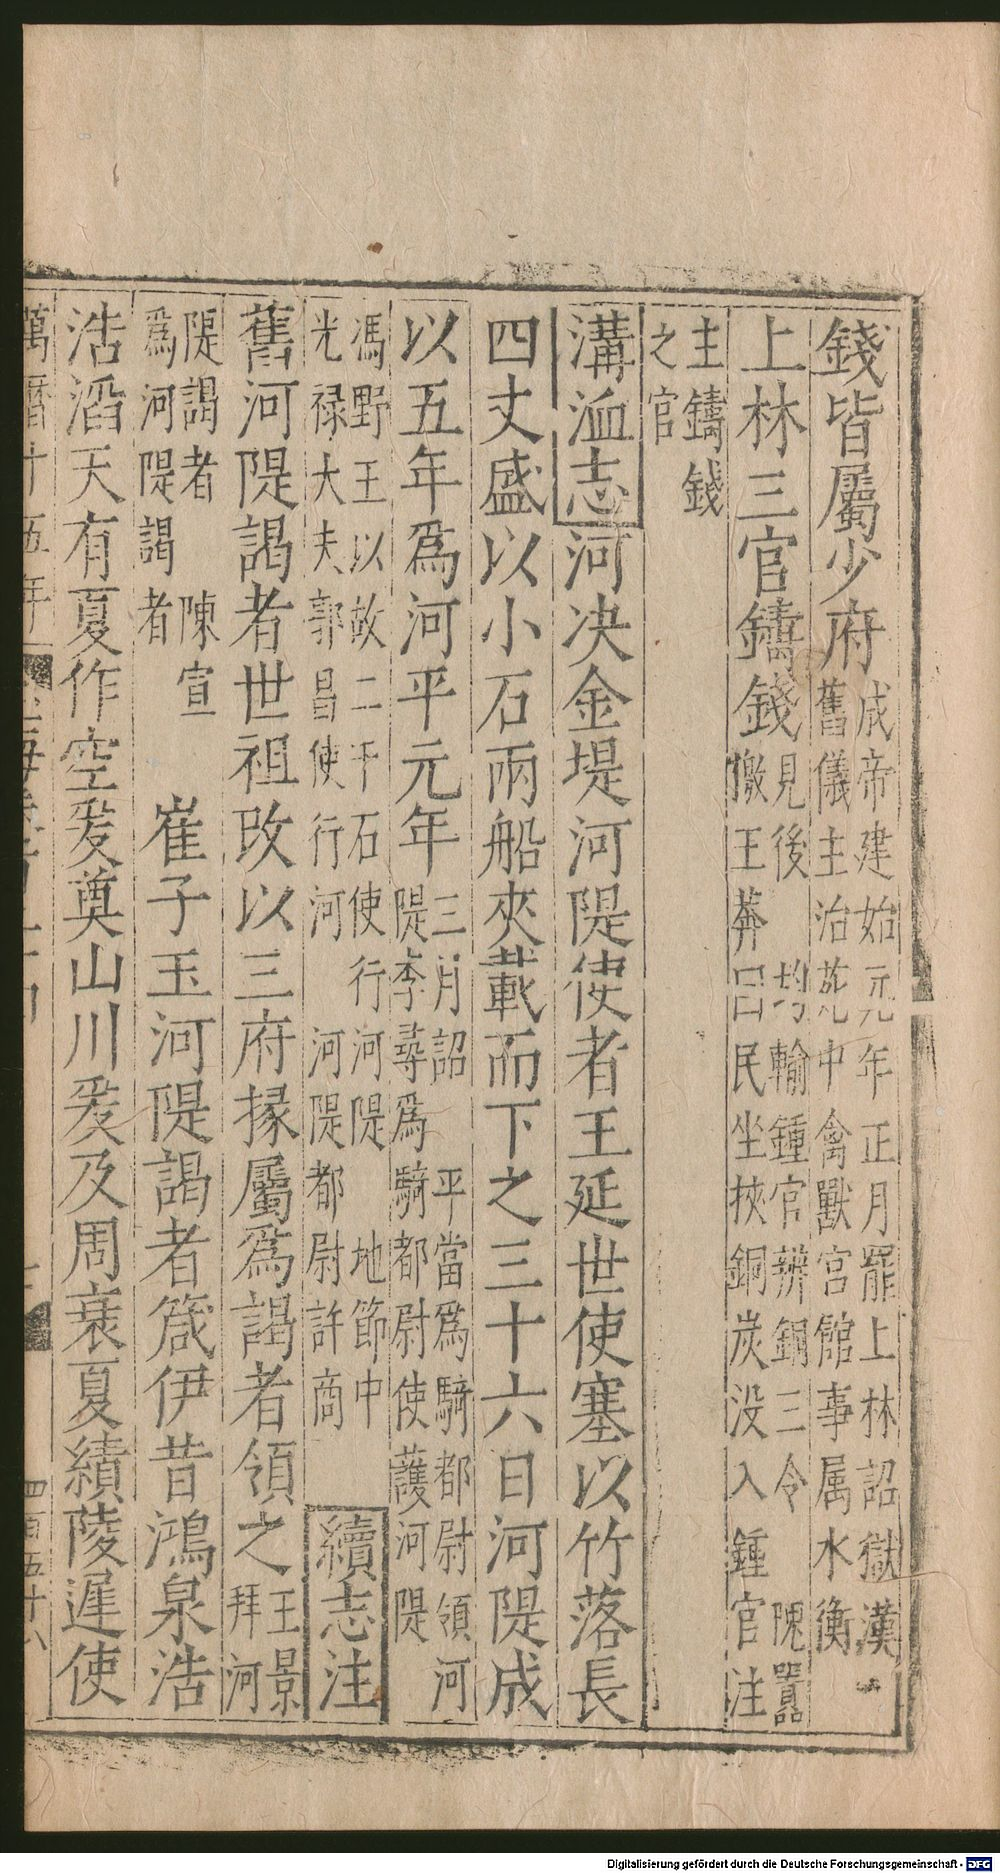 錢皆屬少府成帝建始元年正月罷上林詔獄漢
舊儀主治苑中禽獸宮館事属水衡
上林三官鑄錢見後 均輸鍾官辨銅三令 隗囂
檄王莽曰民坐挾銅炭没入鍾官注
主鑄錢
之官
溝洫志河决金堤河隄使者王延世使塞以竹落長
四丈盛以小石兩船夾載而下之三十六日河隄成
以五年爲河平元年三月詔 平當爲騎都尉領河
隄李尋爲騎都尉使護河隄
馮野王以故二千石使行河隄 地節中
光禄大夫郭昌使行河 河隄都尉許商
續志注
舊河隄謁者世祖改以三府掾屬爲謁者領之王景
拜河
隄謁者 陳宣
爲河隄謁者
崔子玉河隄謁者箴伊昔鴻泉浩
浩滔天有夏作空爰奠山川爰及周衰夏績陵遲使
萬曆十五年
四百五十八
Digitalisierung gefördert durch die Deutsche Forschungsgemeinschaft - DFG